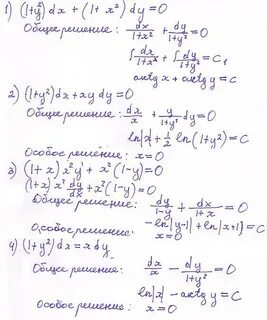 1) (1+y²) dx + (1+ x²) dy = 0
Общее решение: dx/(1+x²) + dy/(1+y²) = 0
∫ dx/(1+x²) + ∫ dy/(1+y²) = C₁
arctg x + arctg y = C
2) (1+y²) dx + xy dy = 0
Общее решение: dx/x + y/(1+y²) dy = 0
ln|x| + 1/2 ln(1+y²) = C
Особое решение: x = 0
3) (1+x) x² y' + x² (1-y) = 0
(1+x) x² dy/dx + x² (1-y) = 0
Общее решение: dy/(1-y) + dx/(1+x) = 0
Особое решение: -ln|y-1| + ln|x+1| = C
4) (1+y²) dx = x dy
Общее решение: dx/x - dy/(1+y²) = 0
ln|x| - arctg y = C
Особое решение: x = 0